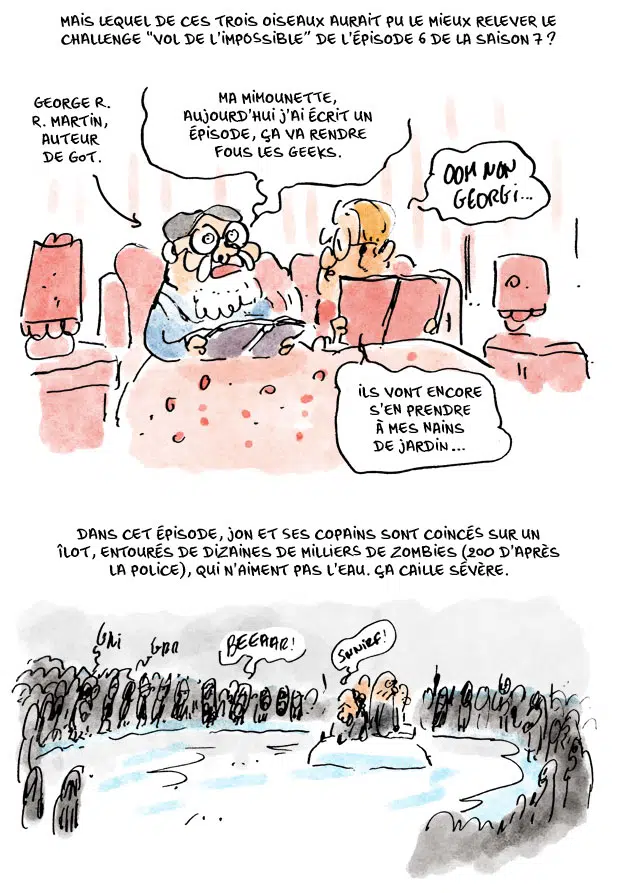 MAIS LEQUEL DE CES TROIS OISEAUX AURAIT PU LE MIEUX RELEVER LE
CHALLENGE "VOL DE L'IMPOSSIBLE" DE L'ÉPISODE 6 DE LA SAISON 7 ?
GEORGE R.
R. MARTIN,
AUTEUR
DE GOT.
MA MIMOUNETTE,
AUJOURD'HUI J'AI ÉCRIT UN
ÉPISODE, ÇA VA RENDRE
FOUS LES GEEKS.
OOH NON
GEORGI...
ILS VONT ENCORE
S'EN PRENDRE
À MES NAINS
DE JARDIN...
DANS CET ÉPISODE, JON ET SES COPAINS SONT COINCÉS SUR UN
ÎLOT, ENTOURÉS DE DIZAINES DE MILLIERS DE ZOMBIES (200 D'APRÈS
LA POLICE), QUI N'AIMENT PAS L'EAU. ÇA CAILLE SÉVÈRE.
BEEAAR!
SNNIRF!